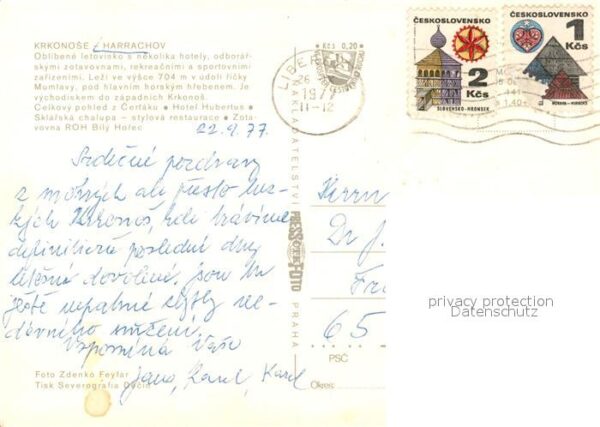 KRKONOŠE - HARRACHOV
Oblíbené letovisko s několika hotely, odborář-
skými zotavovnami, rekreačním a sportovním
zařízením. Leží ve výšce 704 m v údolí říčky
Mumlavy, pod hlavním horským hřebenem. Je
východiskem do západních Krkonoš.
Celkový pohled z Čerťáku • Hotel Hubertus •
Sklářská chalupa – stylová restaurace • Zota-
vovna ROH Bílý Horec
22.9.77.
Srdečné pozdravy
z mokrých ale přesto hez-
kých Krkonoš, kde trávíme
definitivně poslední dny
letošní dovolené.
ještě nepatrné
dávného
Vzpomíná Vaše
Jana, Karel, Karel
Foto Zdenko Feyfar
Tisk Severografia Děčín
NAKLADATELSTVÍ PRESSFOTO PRAHA
Kčs 0,20
LIBEREC
1977
11-12
ČESKOSLOVENSKO
2 Kčs
SLOVENSKO - HRONSEK
ČESKOSLOVENSKO
1 Kčs
MORAVA -
Herrn
Dr J.
Fr
65
PSČ
Okres:
privacy protection
Datenschutz